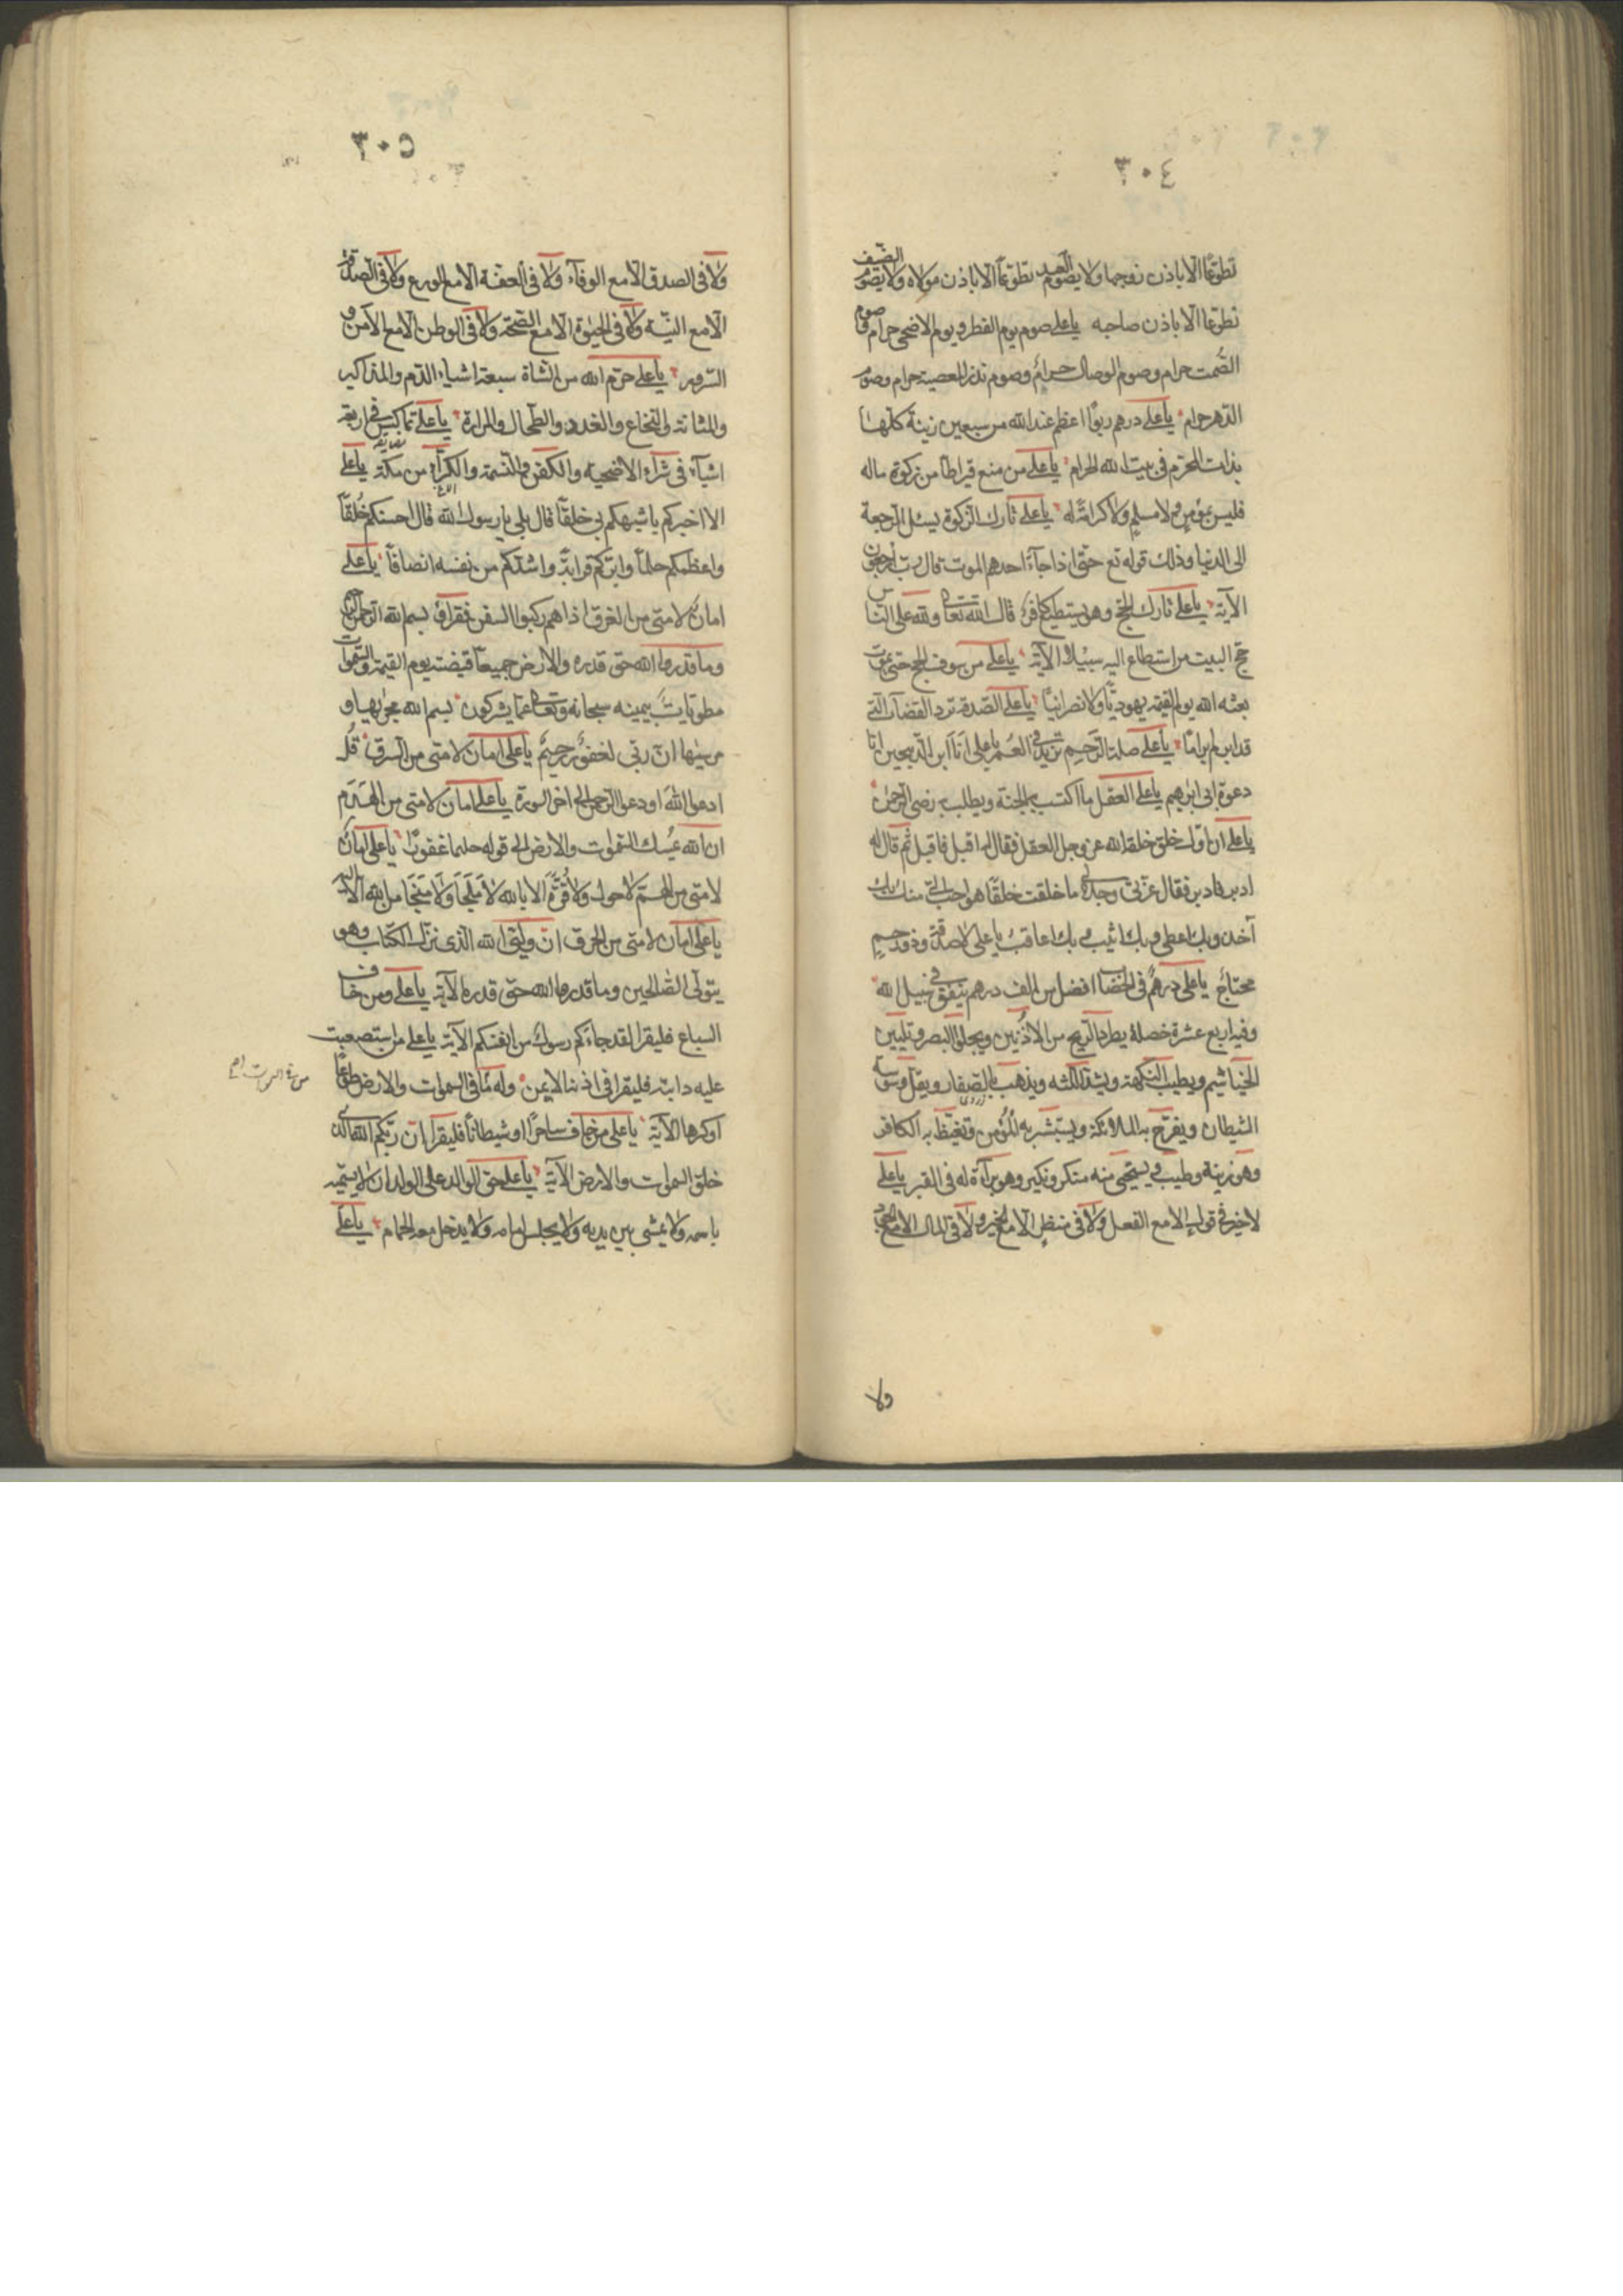 ٣٠٤
تطوّعًا الا باذن زوجها ولا يصوم العبد تطوّعًا الا باذن مولاه ولا يصوم الضّيف
تطوّعًا الا باذن صاحبه يا على صوم يوم الفطر ويوم الاضحى حرام وصوم
الصّمت حرام وصوم الوصال حرام وصوم نذر المعصية حرام وصوم
الدّهر حرام يا على درهم ربوًا اعظم عند الله من سبعين زنية كلّها
بذات المحرّم فى بيت الله الحرام يا على من منع قيراطًا من زكوة ماله
فليس بمؤمن ولا مسلم ولا كرامة له يا على تارك الزكوة يسئل الرجعة
الى الدنيا وذلك قوله تع حتّى اذا جآء احدهم الموت قال ربّ ارجعون
الآية يا على تارك الحجّ وهو يستطيع كافر قال الله تعا ولله على النّاس
حج البيت من استطاع اليه سبيلا الآية يا على من سوف الحج حتى يموت
بعثه الله يوم القيمة يهوديًّا ولا نصرانيًّا يا على الصّدقة تردّ القضآء الّتى
قد ابرم ابرامًا يا على صلة الرّحيم تزيد فى العمر يا على انا ابن الذّبيحين انا
دعوة ابى ابرهيم يا على العقل ما اكتسب به الجنة ويطلب به رضى الرّحمن
يا على ان اوّل خلق خلقه الله عزّ وجل العقل فقال له اقبل فاقبل ثم قال له
ادبر فادبر فقال عزّتى وجلالى ما خلقت خلقًا هو احب الىّ منك بك
آخذ وبك اعطى وبك اثيب وبك اعاقب يا على لا صدقة وذو رحيم
محتاج يا على درهم فى الخضاب افضل من الف درهم ينفق فى سبيل الله
وفيه اربع عشرة خصلة يطرد الرّيح من الاذنين ويجلو البصر وتليين
الخياشيم ويطيب النكهة ويشدّ اللثه ويذهب بالصّفار ويقلّ وسوسة
الشيطان ويفرّح به الملائكة ويستبشر به المؤمن ويغيظ به الكافر
وهو زينة وطيب ويستحيى منه منكر ونكير وهو برآءة له فى القبر يا على
لا خير فى قول الا مع الفعل ولا فى منظر الا مع الخير ولا فى المال الا مع الجود
ولا
٣٠٥
ولا فى الصدق الا مع الوفآء ولا فى العفّة الا مع الورع ولا فى الصّدقة
الّا مع النيّة ولا فى الحيٰوة الا مع الصّحّة ولا فى الوطن الا مع الامن و
السّرور يا على حرّم الله من الشاة سبعة اشياء الدّم والمذاكير
والمثانة والنخاع والغدد والطّحال والمرارة يا على لا تماكس فى اربعة
اشيآء فى شرآء الاضحية والكفن والنّسمة والكرآء من مكّة يا على
الا اخبركم باشبهكم بى خلقًا قال بلى يا رسول الله قال احسنكم خُلقًا
واعظمكم حلمًا وابرّكم قرابة واشدّكم من نفسه انصافًا يا على
امان لامتى من الغرق اذا هم ركبوا السفن فقراؤ بسم الله الرّحمن الرّحيم
وما قدروا الله حق قدره والارض جميعًا قبضته يوم القيمة والسّموات
مطويّات بيمينه سبحانه وتعالى عمّا يشركون بسم الله مجريها و
مرسٰيها انّ ربّى لغفور رحيم يا على امان لامتى من السرق قل
ادعوا الله او دعوا الرحمن الى اخر السورة يا على امان لامتى من الهدم
ان الله يمسك السّموات والارض الى قوله حليما غفورًا يا على امان
لامتى من الهمّ لا حول ولا قوّة الا بالله لا ملجأ ولا منجأ من الله الا اليه
يا على امان لامتى من الحرق انّ وليّى الله الّذى نزّل الكتاب وهو
يتولّى الصّالحين وما قدروا الله حق قدره الآية يا على ومن خاف
السباع فليقرا لقد جاءكم رسول من انفسكم الآية يا على من استصعبت
عليه دابّته فليقرا فى اذنها الايمن وله ما فى السموات والارض طوعًا
او كرها الآية يا على من خاف ساحرًا او شيطانًا فليقرا انّ ربّكم الله الّذى
خلق السموات والارض الآية يا على حق الوالد على الولد ان لا يسمّيه
باسمه ولا يمشى بين يديه ولا يجلس امامه ولا يدخل معه الحمام يا على